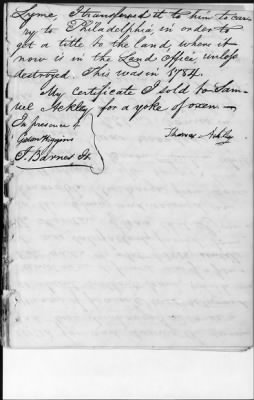 Lyme. I transferred it to him to car-
ry to Philadelphia in order to
get a title to the land, where it
now is in the Land office unless
destroyed. This was in 1784.
My certificate I sold to Sam-
uel Ackley for a yoke of oxen —
In presence of
Higgins
J. Barnes Jr.
Thomas Ackley